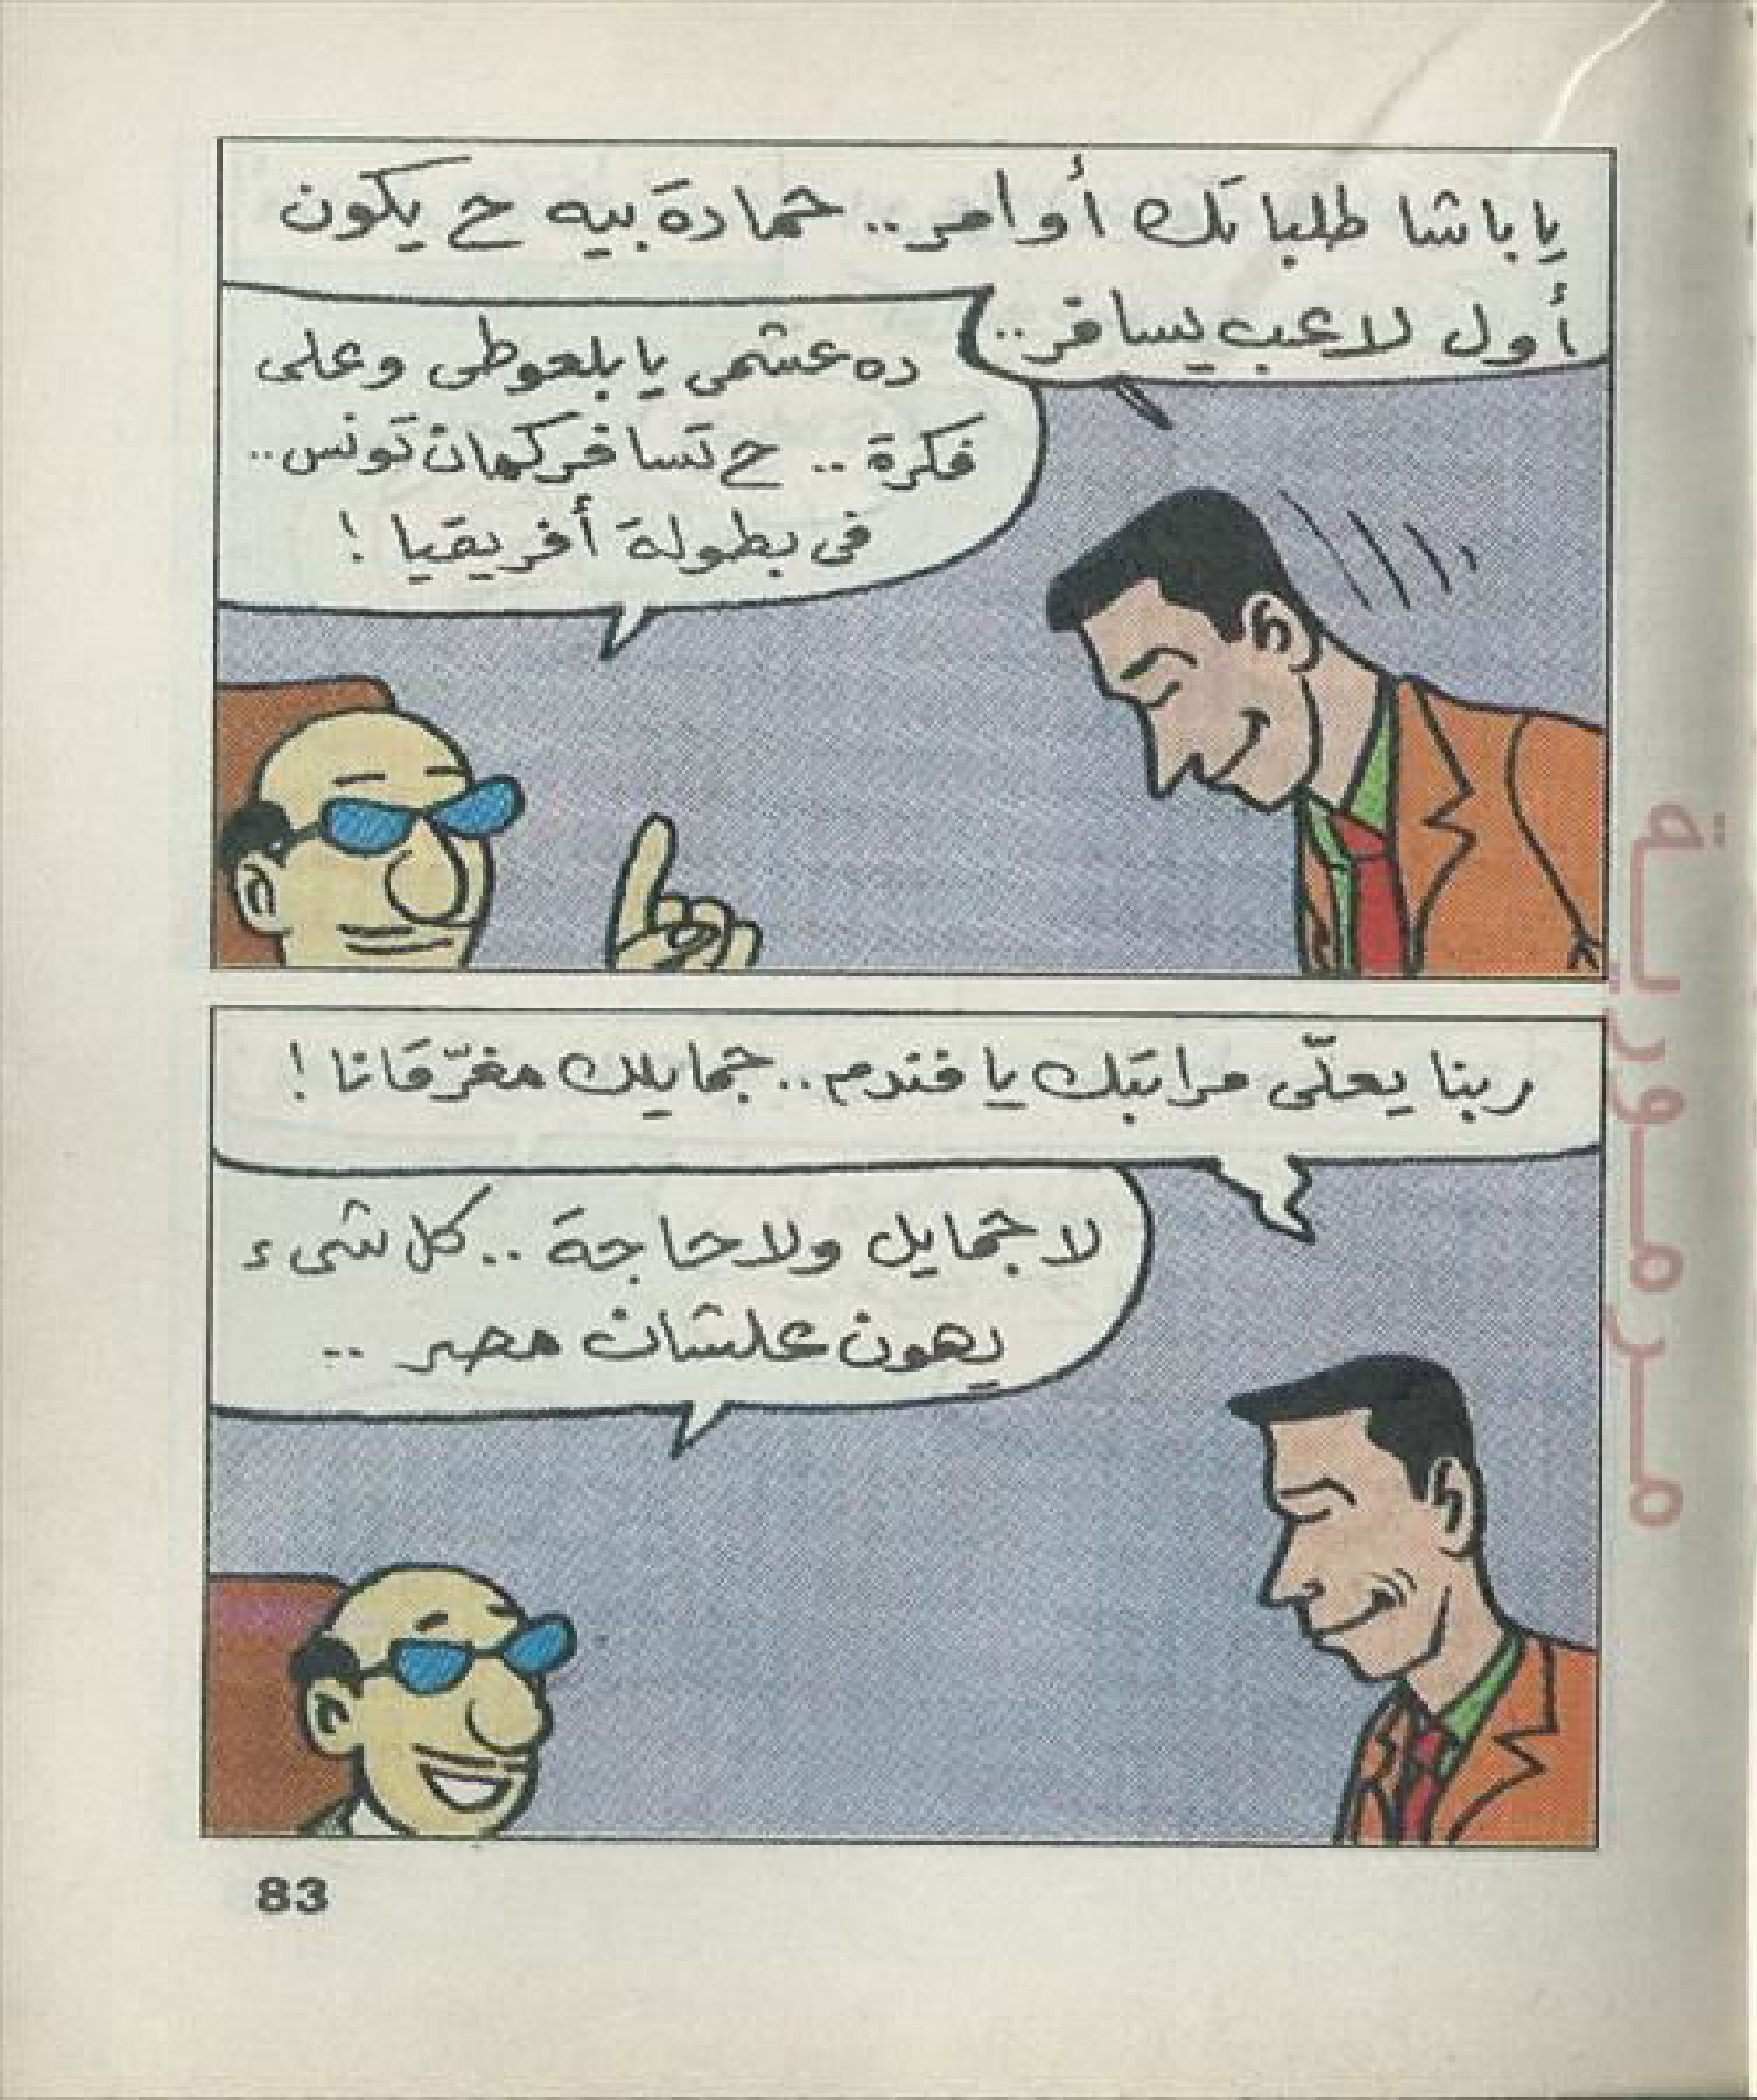 يا باشا طلباتك أوامر.. حمادة بيه ح يكون
أول لاعب يسافر..
ده عشمى يا بلعوطى وعلى
فكرة .. ح تسافر كمان تونس..
فى بطولة أفريقيا !
ربنا يعلّى مراتبك يا فندم.. جمايلك مغرّقانا !
لا جمايل ولا حاجة .. كل شىء
يهون علشان مصر ..
83
مرمورية